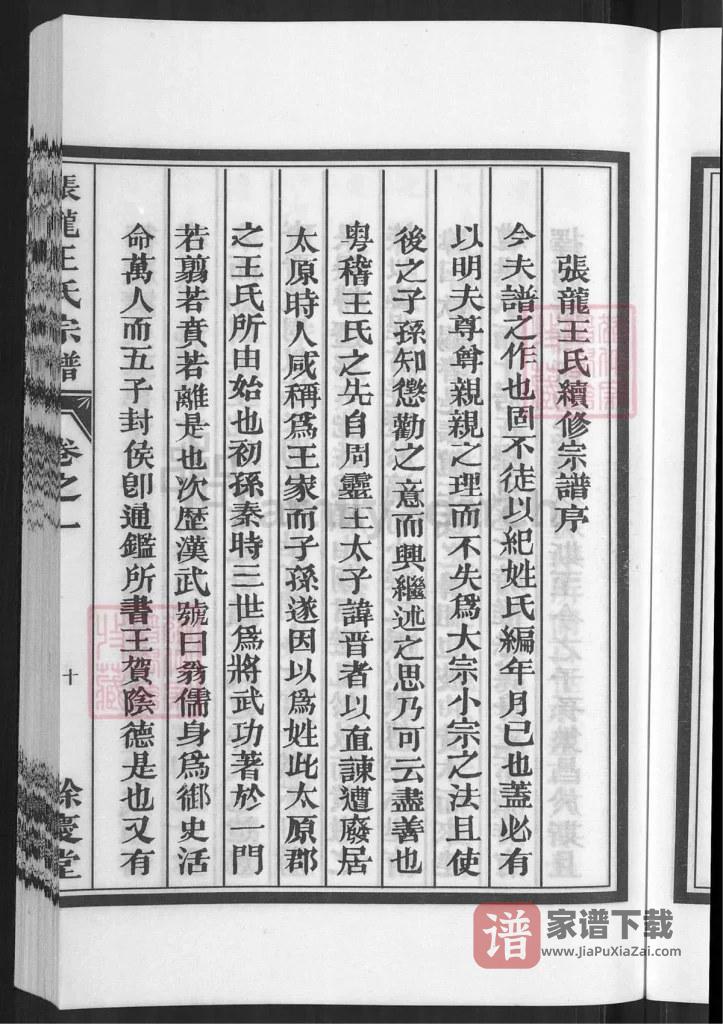 張龍王氏續修宗譜序
今夫譜之作也固不徒以紀姓氏編年月已也蓋必有
以明夫尊尊親親之理而不失爲大宗小宗之法且使
後之子孫知懲勸之意而興繼述之思乃可云盡善也
粤稽王氏之先自周靈王太子諱晋者以直諫遭廢居
太原時人咸稱爲王家而子孫遂因以爲姓此太原郡
之王氏所由始也初孫秦時三世爲將武功著於一門
若翦若賁若離是也次歷漢武號曰翁儒身爲御史活
命萬人而五子封侯卽通鑑所書王賀陰德是也又有
張龍王氏宗譜
卷之一
十
餘慶堂
谱
家谱下载
www.JiaPuXiaZai.com